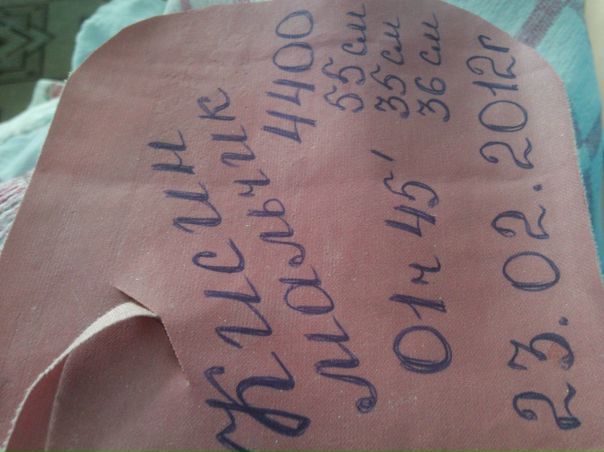 Кисин
мальчик
4400
55 см
35 см
36 см
01ч 45'
23.02.2012г